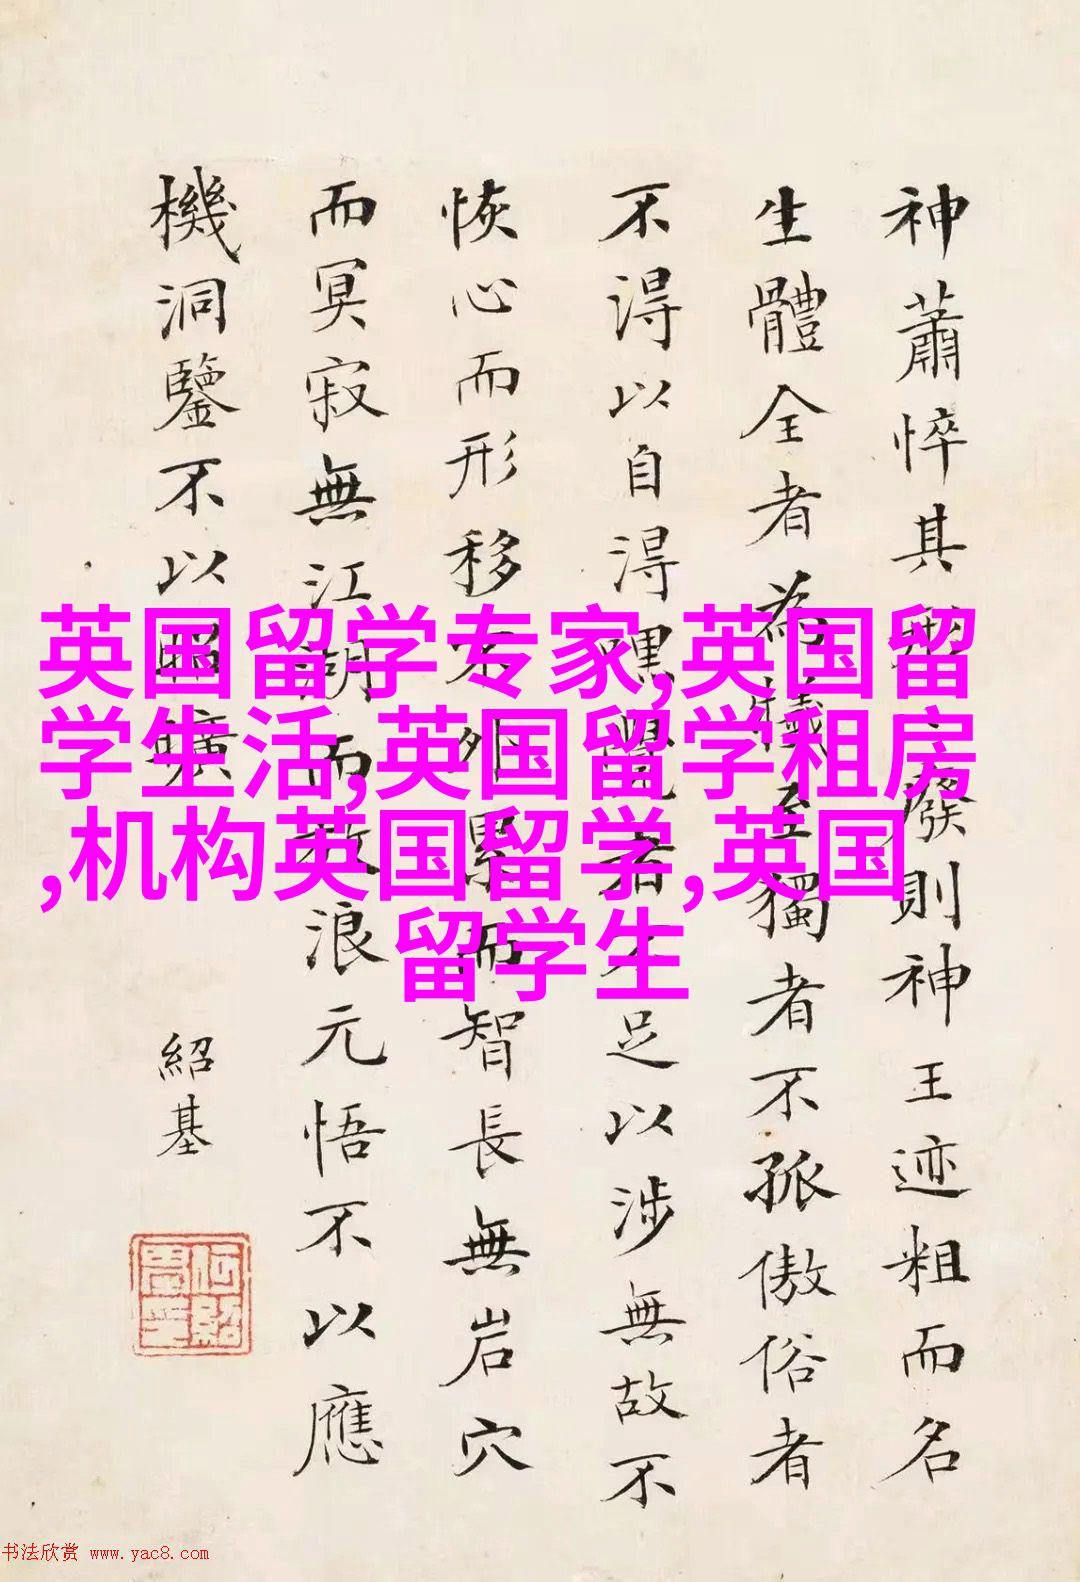 神蕭悴其廢則神王迹粗而名
生體全者為犧至獨者不孤傲俗者
不得以自得嘿覺者不足以涉無故不
恢心而形移不外累而智長無岩穴
而冥寂無江湖而放浪元悟不以應
機洞鑒不以昭曠
紹基
英国留学专家,英国留
学生活,英国留学租房
,机构英国留学,英国
留学生
书法欣赏 www.yac8.com